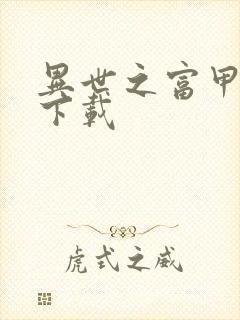 異世之富甲
下載
虎式之威